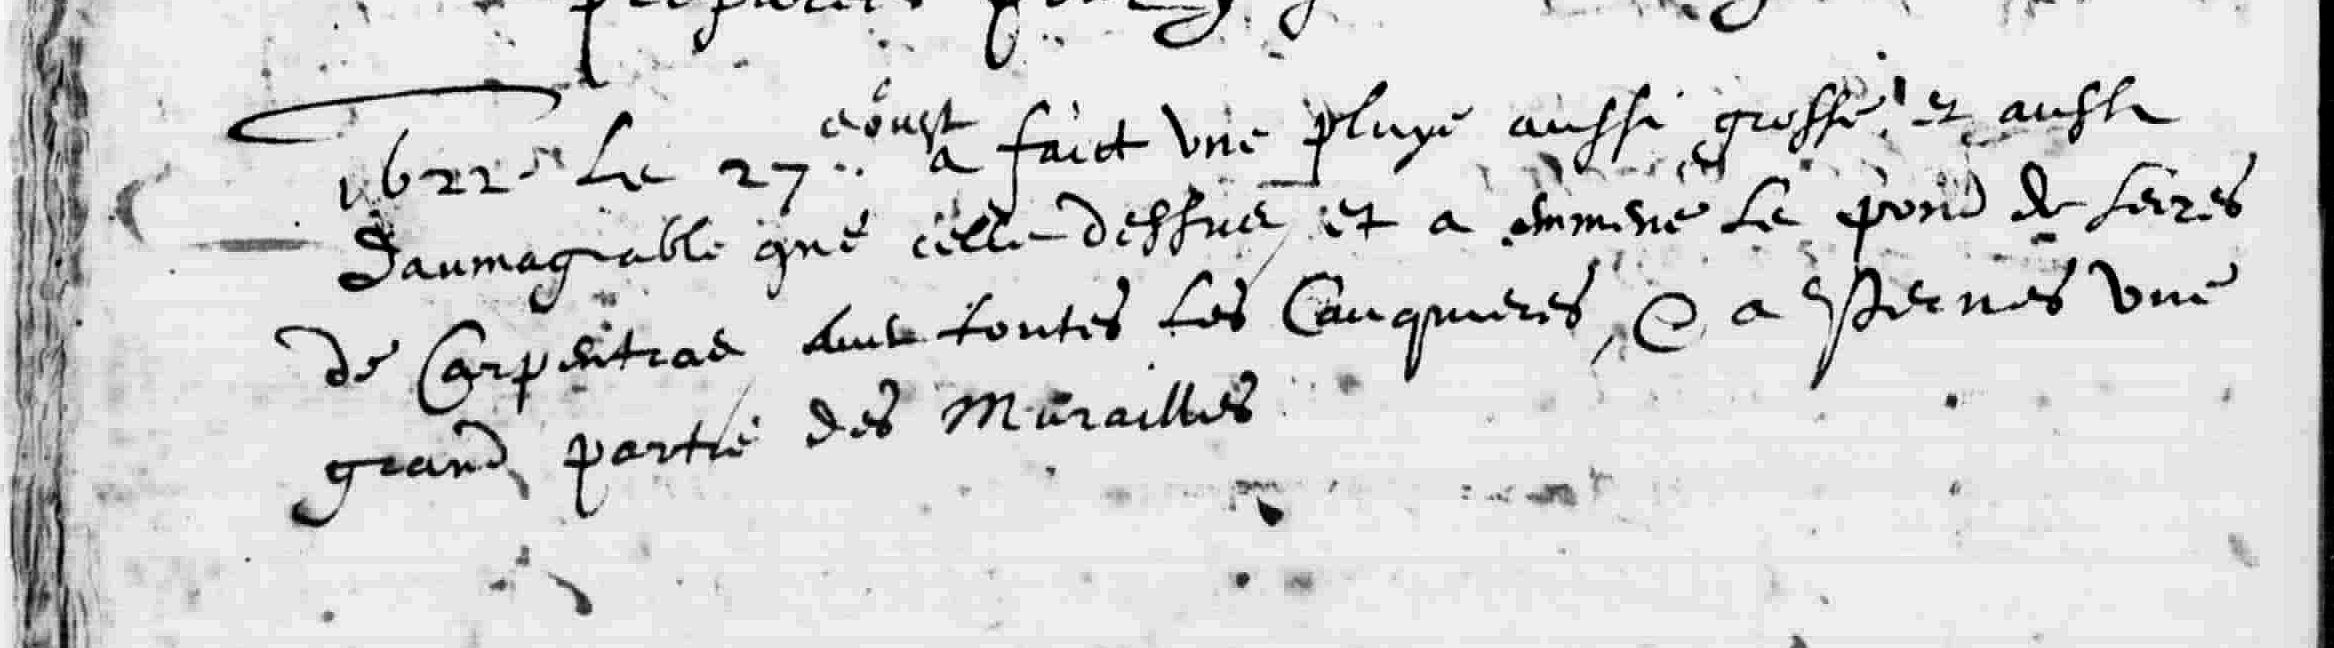 1622 Le 27 aoust a faict une pluye aussi grosse et aussi
daumagable que celle dessus et a emmene Le pont de Serres
de Carpentras avec toutes Les Cauquieres, & a Pernes une
grand partie des Murailles